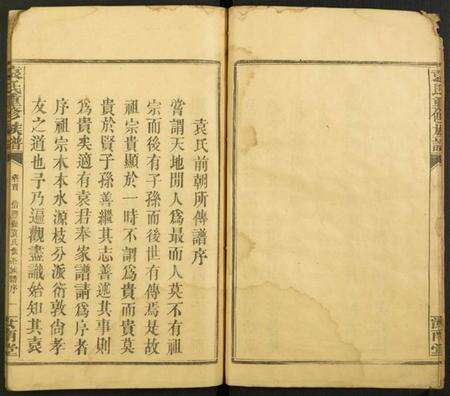 袁氏重修族譜
汝南堂
袁氏前朝所傳譜序
嘗謂天地間人為最而人莫不有祖
宗而後有子孫而後世有傳焉是故
祖宗貴顯於一時不謂為貴而貴莫
貴於賢子孫善繼其志善述其事則
為貴矣適有袁君奉家譜請為序者
序祖宗木本水源枝分派衍敦尚孝
友之道也予乃遍觀盡識始知其袁
袁氏重修族譜
卷首
汝南堂